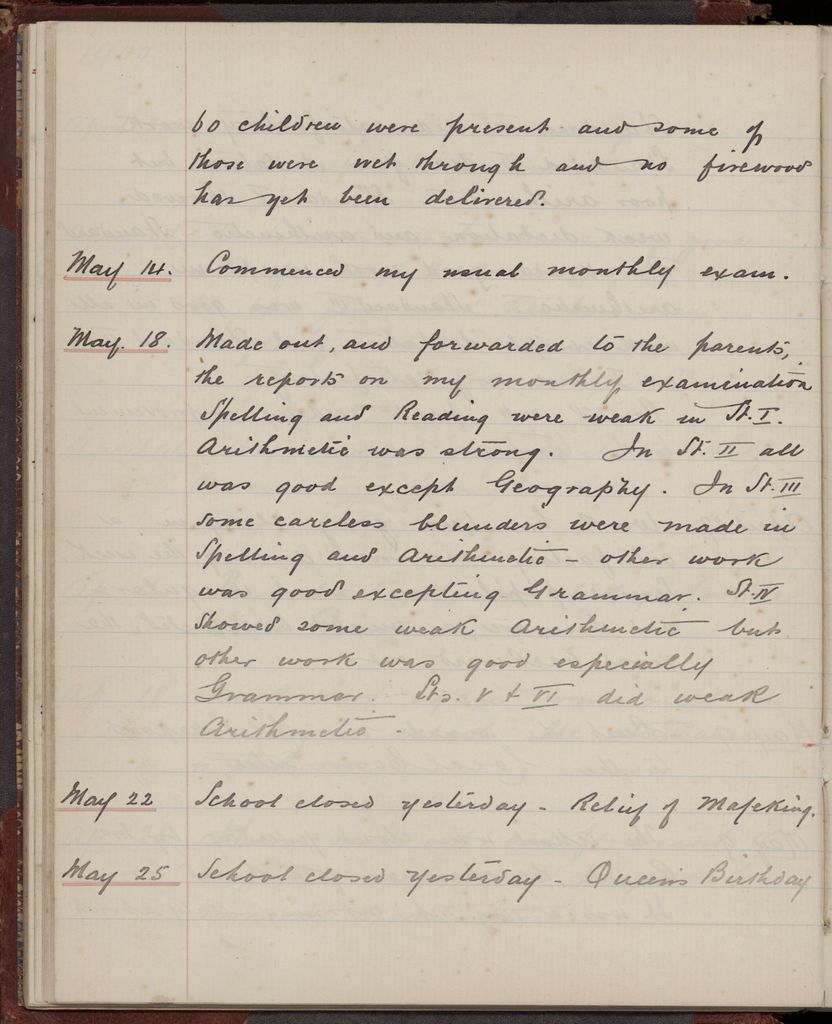 60 children were present and some of
those were wet through and no firewood
has yet been delivered.
May 14. Commenced my usual monthly exam.
May. 18. Made out, and forwarded to the parents,
the reports on my monthly examination
Spelling and Reading were weak in St. I.
Arithmetic was strong. In St. II all
was good except Geography. In St. III
some careless blunders were made in
Spelling and Arithmetic – other work
was good excepting Grammar. St. IV
showed some weak Arithmetic but
other work was good especially
Grammar. Sts. V & VI did weak
Arithmetic.
May 22 School closed yesterday – Relief of Mafeking.
May 25 School closed yesterday – Queen's Birthday